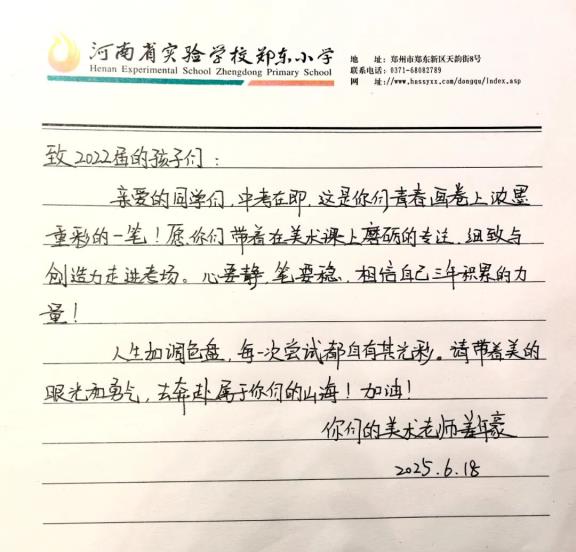 河南省实验学校郑东小学
Henan Experimental School Zhengdong Primary School
地 址：郑州市郑东新区天韵街8号
联系电话：0371-68082789
网 址：//www.hnssyxx.com/dongqu/Index.asp
致2022届的孩子们：
亲爱的同学们，中考在即，这是你们青春画卷上浓墨
重彩的一笔！愿你们带着在美术课上磨砺的专注、细致与
创造力走进考场。心要静，笔要稳，相信自己三年积累的力
量！
人生如调色盘，每一次尝试都自有其光彩。请带着美的
眼光和勇气，去奔赴属于你们的山海！加油！
你们的美术老师姜年豪
2025.6.18